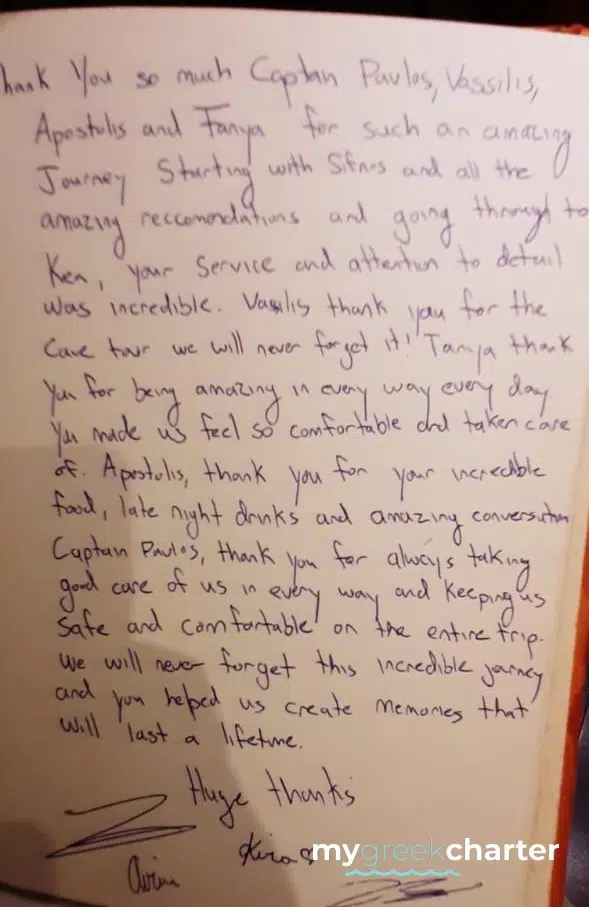 Thank You so much Captain Pavlos, Vassilis,
Apostolis and Tanya for such an amazing
Journey Starting with Sifnos and all the
amazing reccomendations and going through to
Kea, your Service and attention to detail
was incredible. Vasilis thank you for the
Cave tour we will never forget it! Tanya thank
You for being amazing in every way every day
You made us feel so comfortable and taken care
of. Apostolis, thank you for your incredible
food, late night drinks and amazing conversation
Captain Pavlos, thank you for always taking
good care of us in every way and keeping us
safe and comfortable on the entire trip.
We will never forget this incredible journey
and you helped us create memories that
will last a lifetime.
Huge thanks
Kira
mygreekcharter